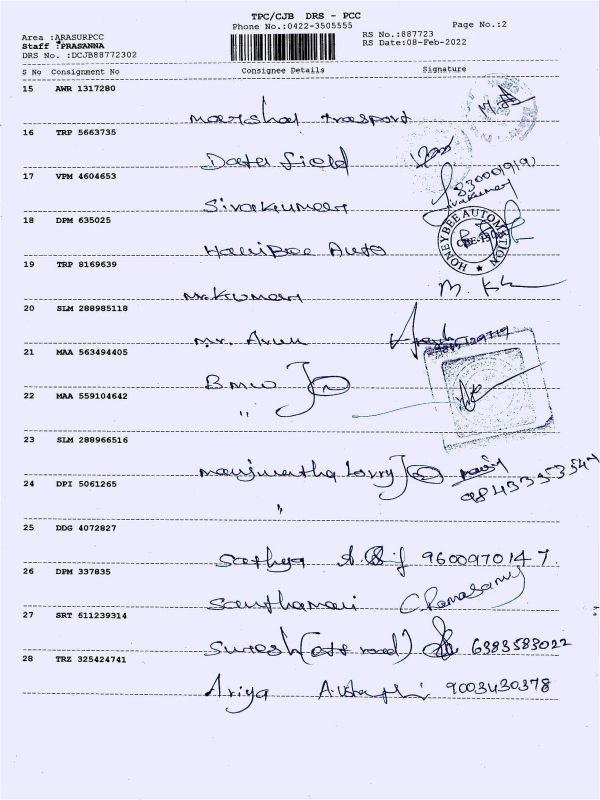 TPC/CJB DRS - PCC
Phone No.:0422-3505555
Page No.:2
Area :ARASURPCC
RS No.:887723
Staff :PRASANNA
RS Date:08-Feb-2022
DRS No. :DCJB88772302
S No Consignment No Consignee Details Signature
15 AWR 1317280
Marshal Trasport
16 TRP 5663735
Data field
17 VPM 4604653
Sivakumar
18 DPM 635025
HONEYBEE AUTOMATION
Honibee Auto
19 TRP 8169639
Mr. Kumar
20 SLM 288985118
Mr. Arun
21 MAA 563494405
BMW
22 MAA 559104642
"
23 SLM 288966516
Manjunatha Lorry
24 DPI 5061265
"
25 DDG 4072827
Sathya 9600970147
26 DPM 337835
Santhamani
27 SRT 611239314
Suresh 6383583022
28 TRZ 325424741
Ariya 9003430378